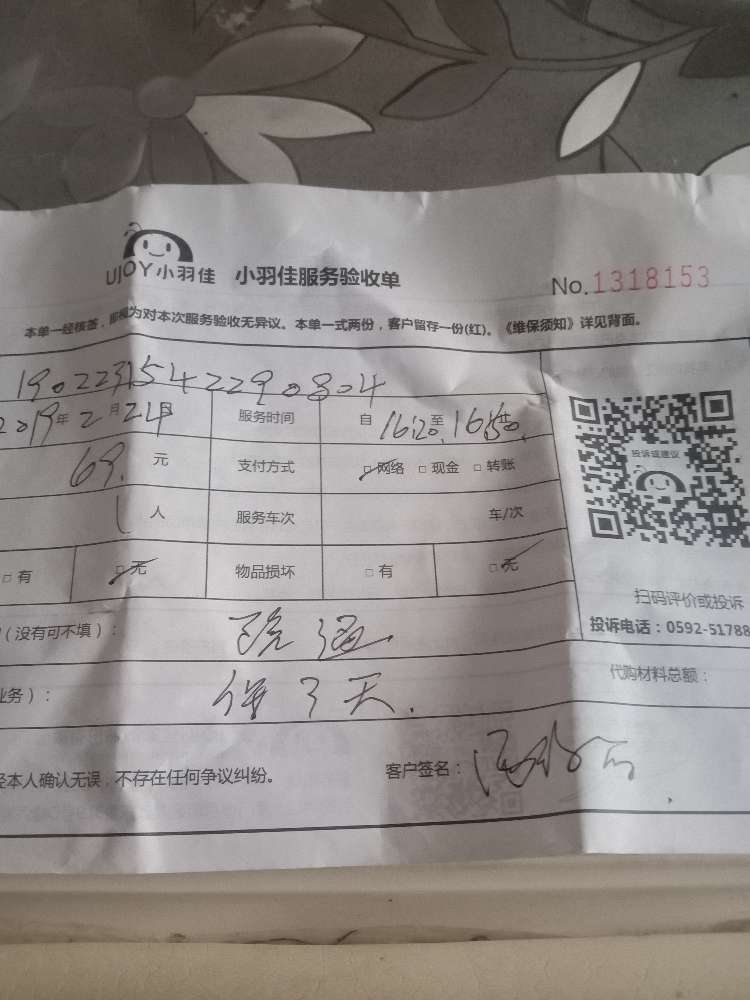 UJOY小羽佳 小羽佳服务验收单 No.1318153
本单一经核签，即视为对本次服务验收无异议。本单一式两份，客户留存一份(红)。《维保须知》详见背面。
1902231542290804
2019年2月24日 服务时间 自16:20至16:50
投诉或建议
69.元 支付方式 □网络 □现金 □转账
1人 服务车次 车/次
□有 □无 物品损坏 □有 □无
扫码评价或投诉
(没有可不填)： 疏通.
投诉电话：0592-51788
业务)： 保3天.
代购材料总额：
经本人确认无误，不存在任何争议纠纷。 客户签名：